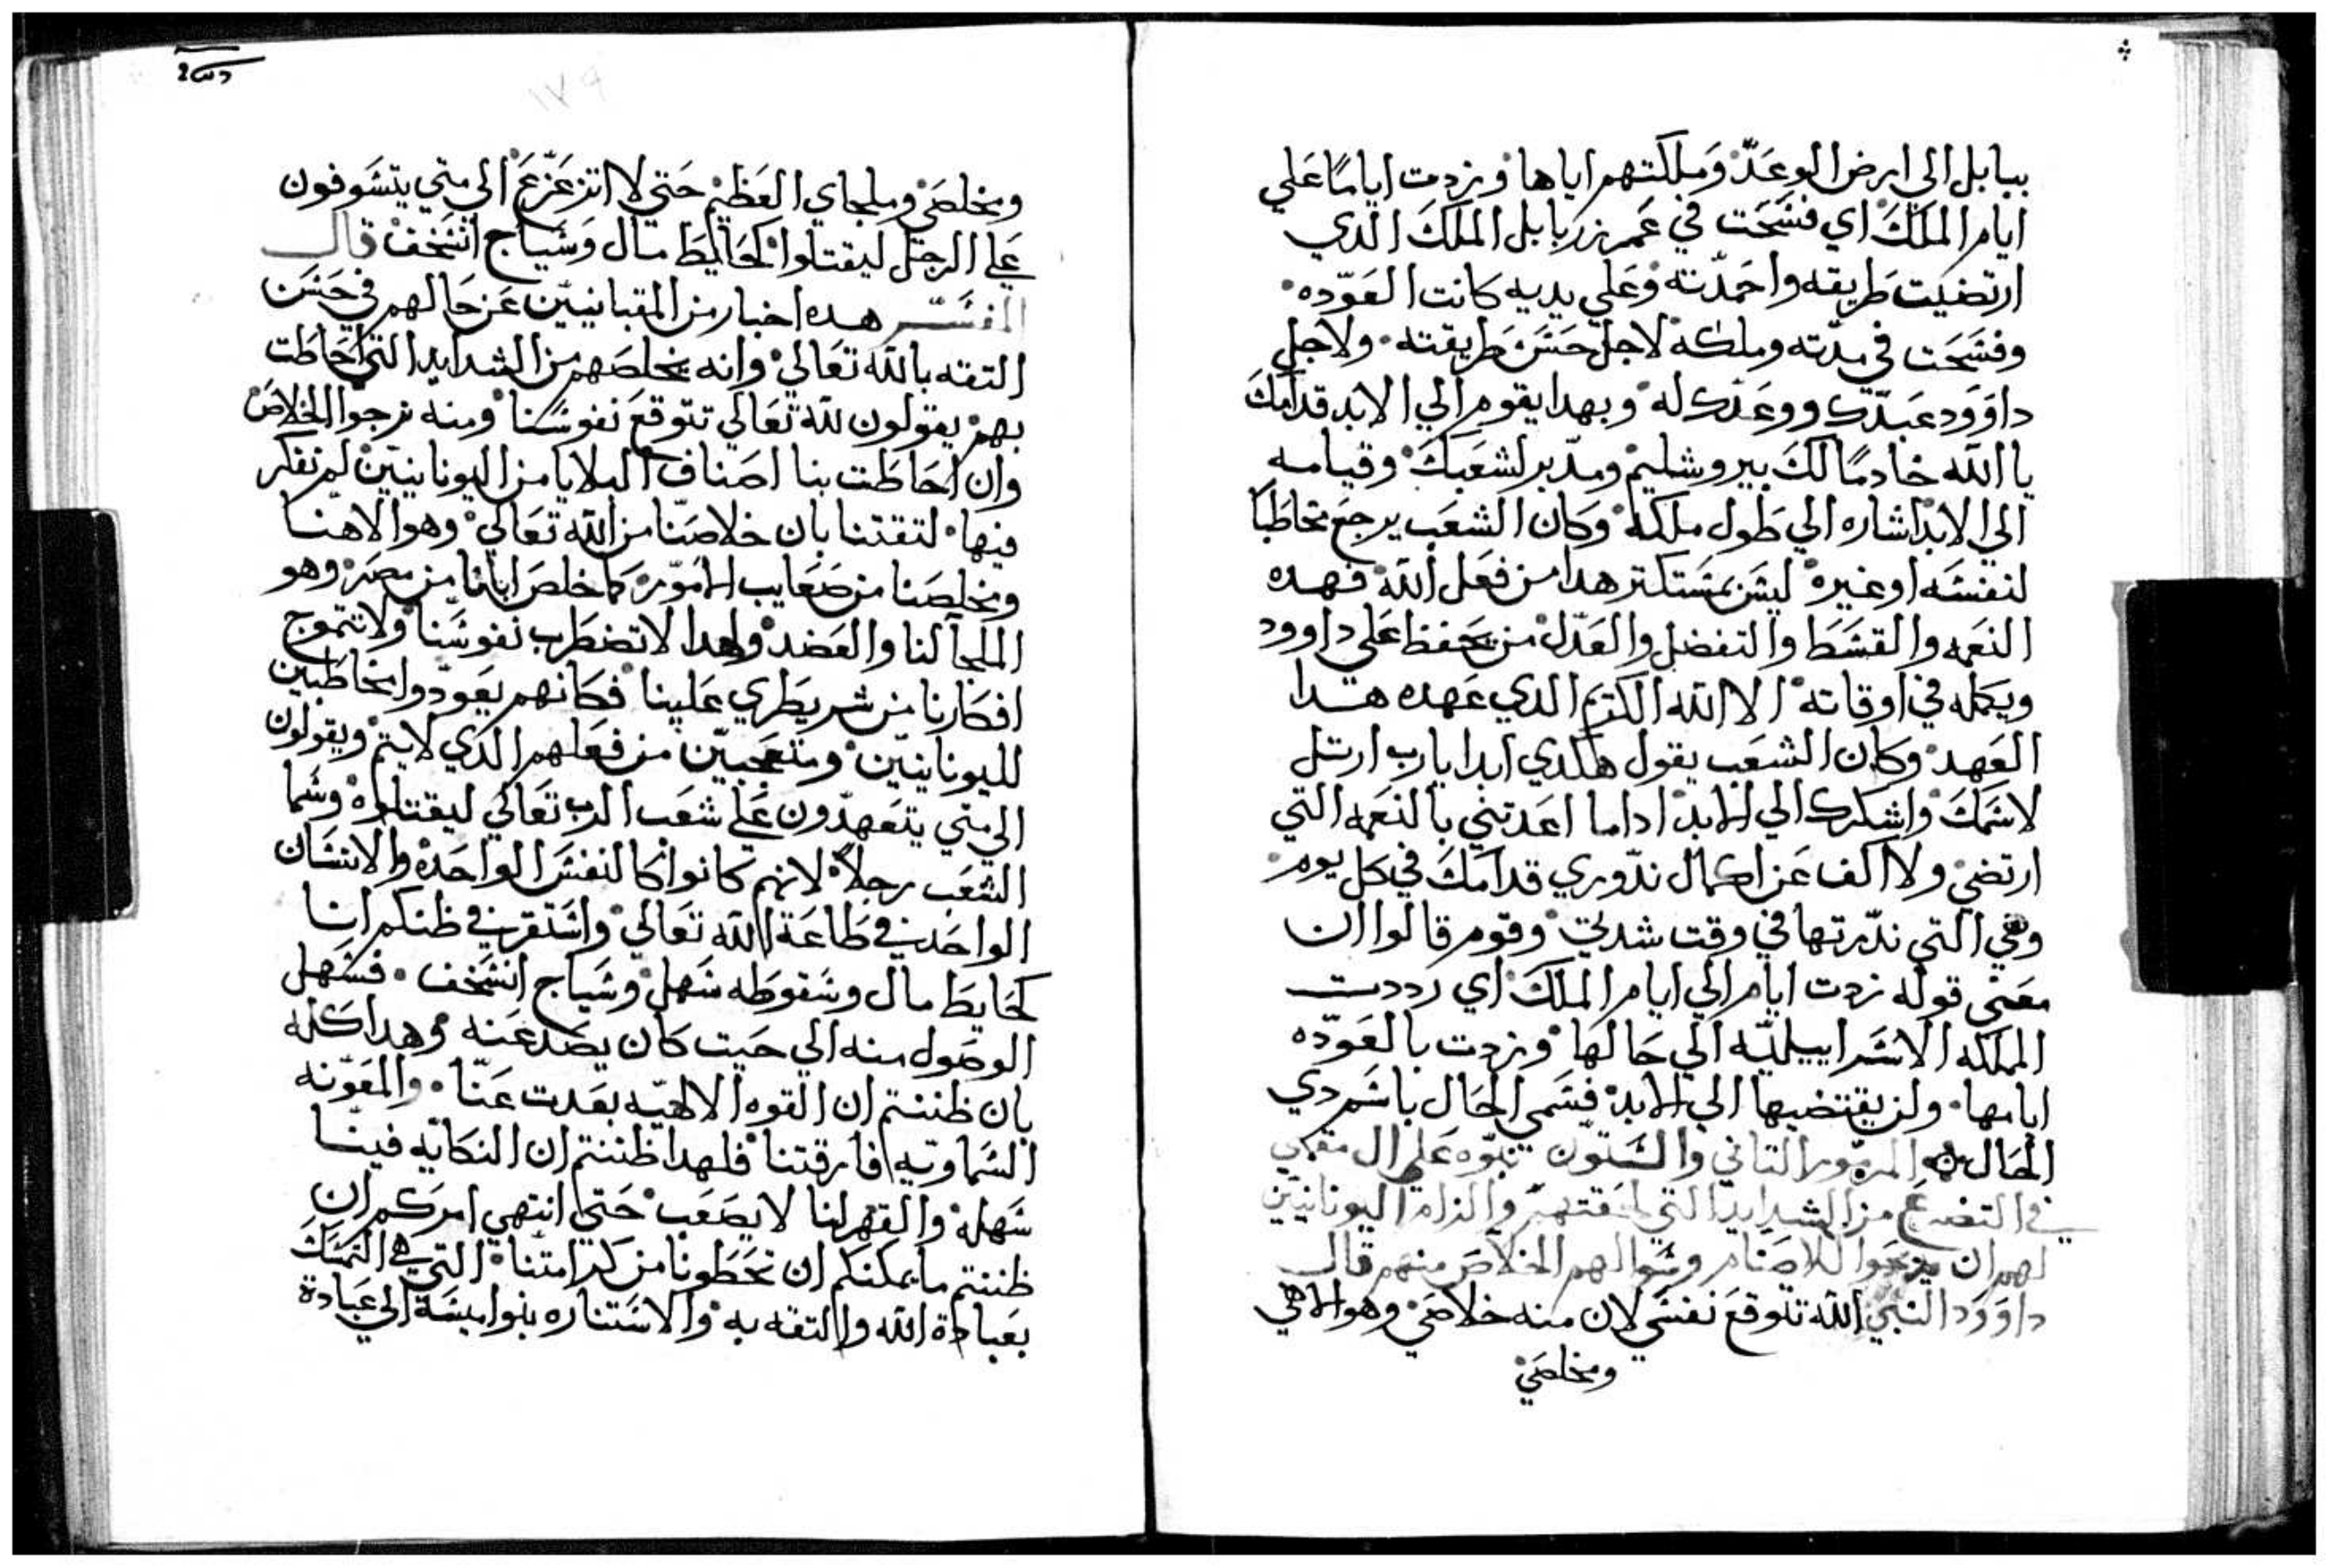 ببابل الي ارض الوعد وملكتهم اياها وزدت اياما علي
ايام الملك اي فسحت في عمر زربابل الملك الدي
ارتضيت طريقه واحمدته وعلي يديه كانت العوده
وفسحت في مدته وملكه لاجل حسن طريقته ولاجل
داوود عبدك ووعدك له وبهدا يقوم الي الابد قدامك
يا الله خادما لك بيروشليم ومدبر لشعبك وقيامه
الي الابد اشاره الي طول ملكه وكان الشعب يرجع مخاطبا
لنفسه او غيره ليس بمستكتر هدا من فعل الله فهده
النعمه والقسط والتفضل والعدل من يحفظ علي داوود
ويكمله في اوقاته الا الله الكريم الدي عهده هدا
العهد وكان الشعب يقول هكدي ابدا يارب ارتل
لاسمك واشكرك الي الابد ادا ما اعدتني بالنعمه التي
ارتضي ولا اكف عن اكمال ندوري قدامك في كل يوم
وهي التي ندرتها في وقت شدتي وقوم قالوا ان
معني قوله زدت ايام الي ايام الملك اي رددت
المملكه الاسراييليه الي حالها وزدت بالعوده
ايامها ولن يقتضيها الي الابد فسمي الحال باسم دي
الحال المزمور التاني والستون نبوه علي ال مقبي
في التضرع من الشدايد التي لحقتهم والزام اليونانيين
لهم ان يدبحوا للاصنام وسوالهم الخلاص منهم قال
داوود النبي الله تتوقع نفسي لان منه خلاصي وهو الاهي
ومخلصي
١٧٩
ومخلصي وملجاي العظيم حتي لا اتزعزع الي متي يتسوفون
علي الرجل ليقتلوا كحايط مال وسياج انسخف قال
المفسر هده اخبار من المقبانيين عن حالهم في حسن
التقه بالله تعالي وانه يخلصهم من الشدايد التي احاطت
بهم يقولون لله تعالي تتوقع نفوسنا ومنه نرجوا الخلاص
وان احاطت بنا اصناف البلايا من اليونانيين لم نفكر
فيها لتقتنا بان خلاصنا من الله تعالي وهو الاهنا
ومخلصنا من صعايب الامور كما خلص اباينا من مصر وهو
الملجا لنا والعضد ولهدا لا تضطرب نفوسنا ولا تتموج
افكارنا من شر يطري علينا فكانهم يعودوا مخاطبين
لليونانيين ومتعجبين من فعلهم الدي لا يتم ويقولون
الي متي يتعهدون علي شعب الرب تعالي ليقتلوه وسما
الشعب رجلا لانهم كانوا كالنفس الواحده والانسان
الواحد في طاعة الله تعالي واستقر في ظنكم انا
كحايط مال وسقوطه سهل وسياج انسخف فسهل
الوصول منه الي حيت كان يصد عنه وهدا كله
بان ظننتم ان القوه الالهيه بعدت عنا والمعونه
السماويه فارقتنا فلهدا ظننتم ان النكايه فينا
سهله والقهر لنا لا يصعب حتي انتهي امركم ان
ظننتم ما يمكنكم ان تحطونا من كرامتنا التي هي التمسك
بعبادة الله والتقه به والاستناره بنواميسه الي عبادة